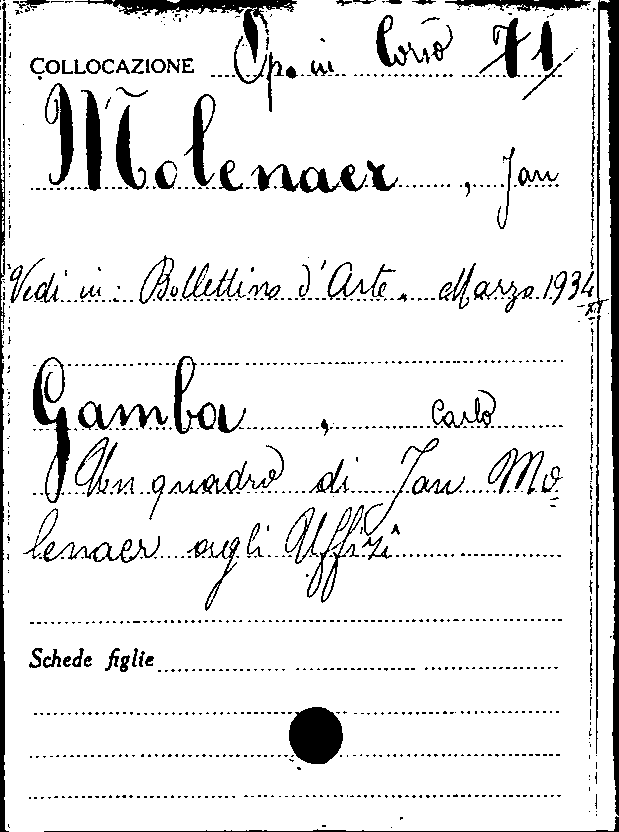 COLLOCAZIONE Op. in Corso 71/
Molenaer, Jan
Vedi in: Bollettino d'Arte. Marzo 1934
XII
Gamba, Carlo
Un quadro di Jan Mo=
lenaer agli Uffizi
Schede figlie